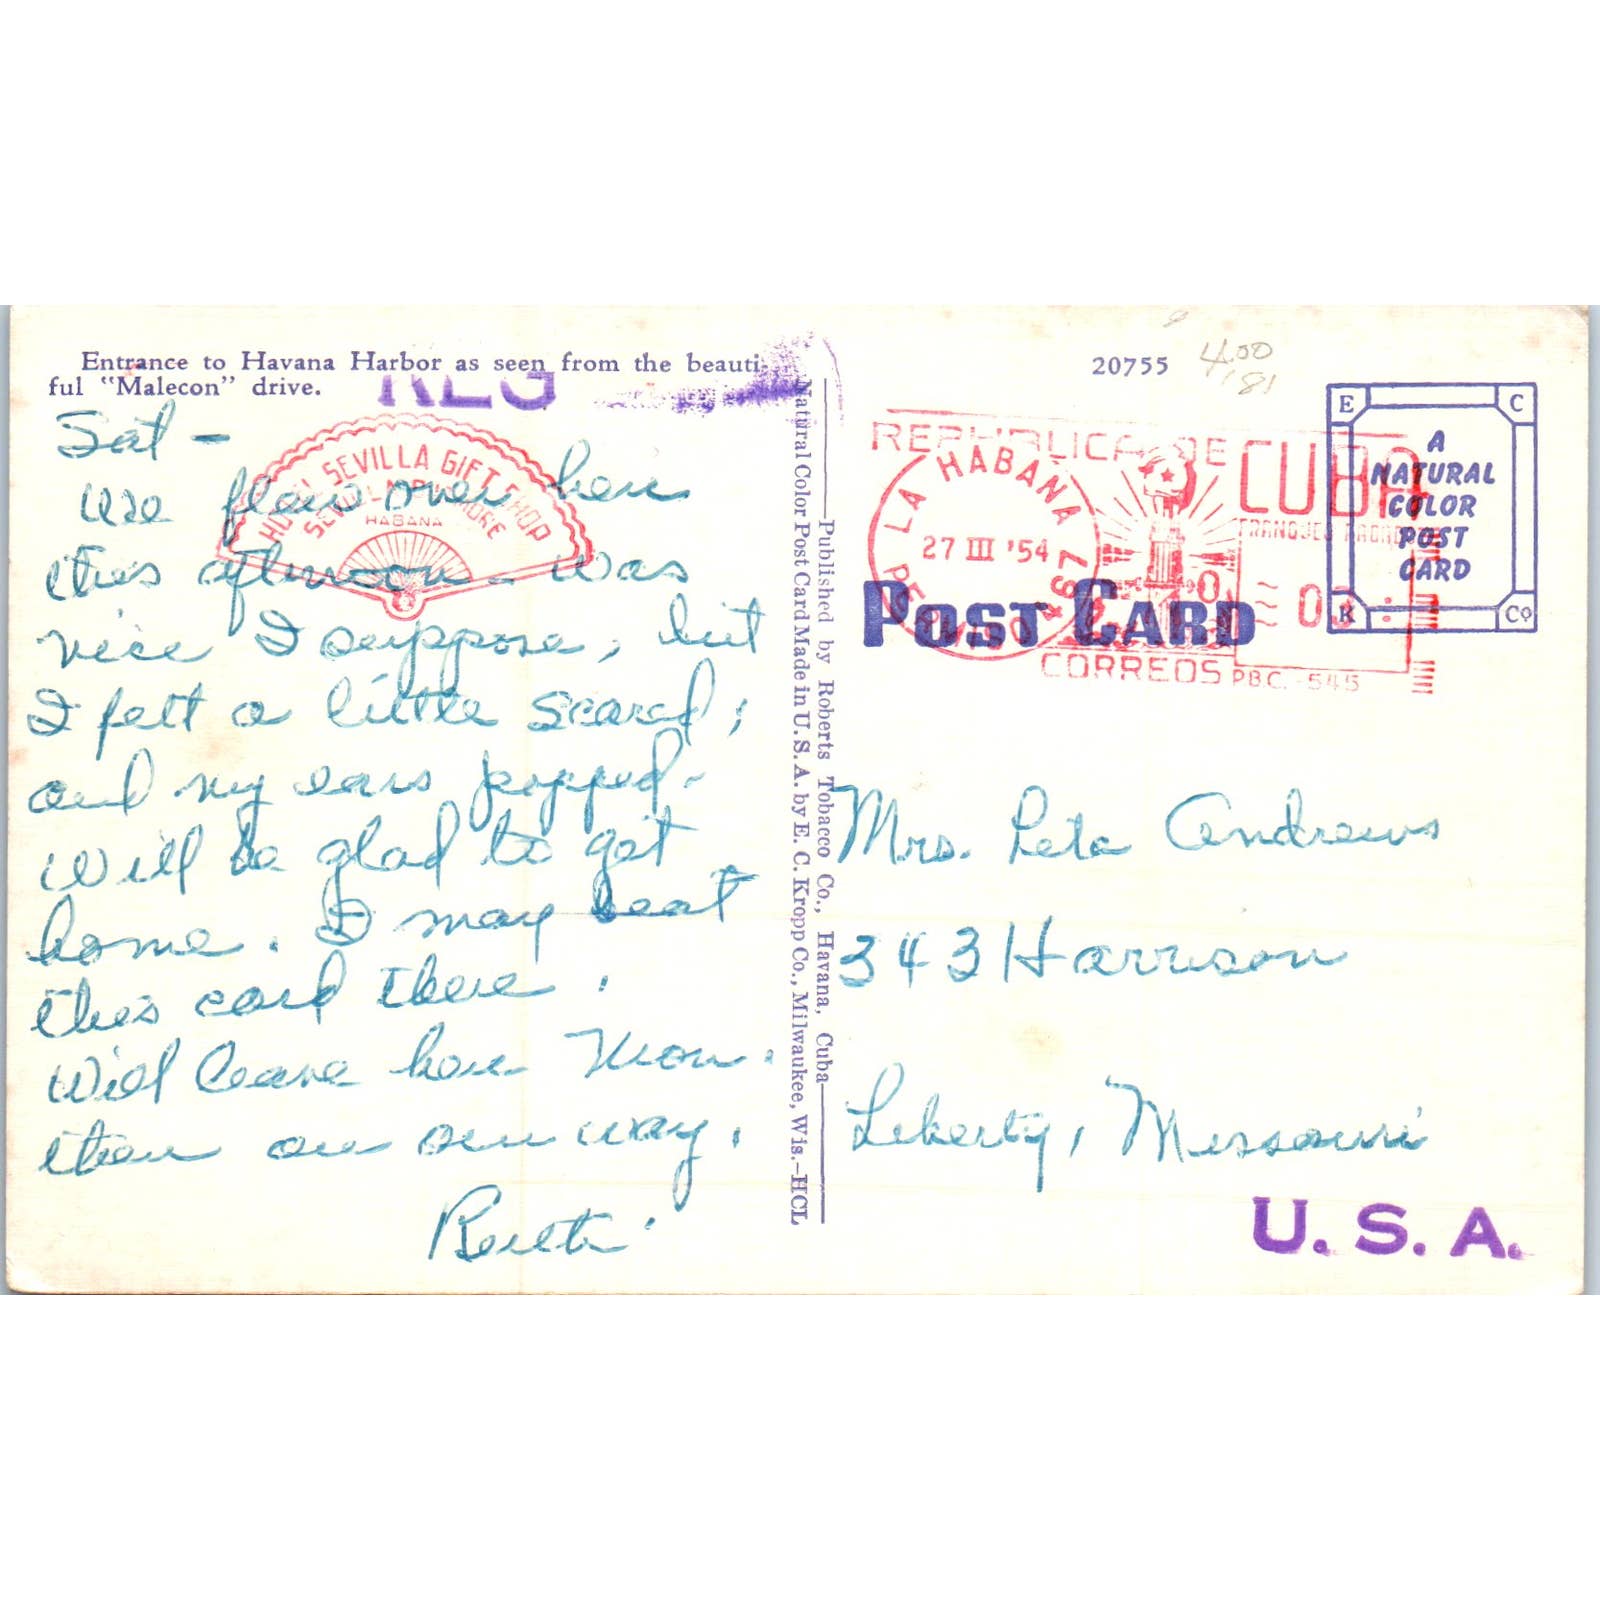 Entrance to Havana Harbor as seen from the beauti-
ful "Malecon" drive.
REG
HOTEL SEVILLA GIFT SHOP
SEVILLA BILTMORE
HABANA
Sat -
We flew over here
this afternoon - was
nice I suppose, but
I felt a little scared,
and my ears popped.
Will be glad to get
home. I may beat
this card there.
Will leave here Mon.
then on our way.
Ruth
Published by Roberts Tobacco Co., Havana, Cuba
Natural Color Post Card Made in U. S. A. by E. C. Kropp Co., Milwaukee, Wis.-HCL
20755
4.00
181
REPUBLICA DE CUBA
LA HABANA
27 III '54
CORREOS
PBC. -545
POST CARD
E C
K Co
A
NATURAL
COLOR
POST
CARD
Mrs. Leta Andrews
343 Harrison
Liberty, Missouri
U. S. A.